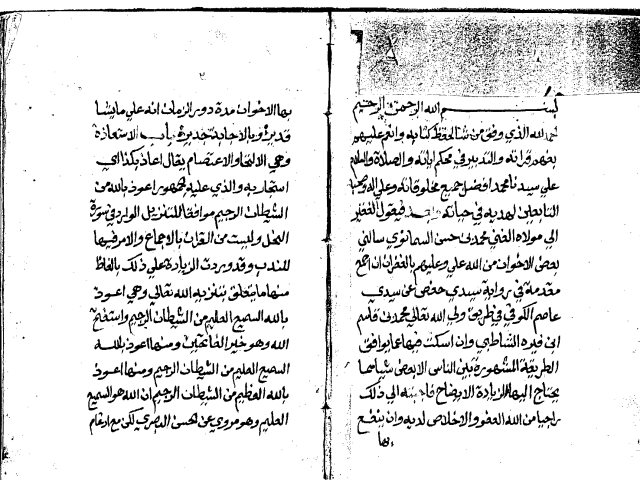 بسم الله الرحمن الرحيم
الحمد لله الذي وفق من شا لحفظ كتابه وانعم عليهم
بفهم قرانه والتدبر في محكم اياته والصلاة والسلام
علي سيدنا محمد افضل جميع مخلوقاته وعلي اله وصحبه
التابعين لهديه في حياته وبعد فيقول الفقير
الي مولاه الغني محمد بن حسن السمانودي سالني
بعض الاخوان من الله علي وعليهم بالغفران ان اجمع
مقدمة في رواية سيدي حفص عن سيدي
عاصم الكوفي في طريق ولي الله تعالي محمد قاسم
ابن فيره الشاطبي وان اسكت فيها عما يوافق
الطريقة المشهورة بين الناس الا بعض شيا مما
يحتاج اليها لزيادة الايضاح فاجبته الي ذلك
راجيا من الله العفو والاخلاص لديه وان ينفع
بها
٢
بها الاخوان مدة دور الزمان انه علي ما يشا
قدير وبالاجابة جدير باب الاستعاذة
وهي الالتجا والاعتصام يقال اعاذ بكذا اي
استجار به والذي عليه الجمهور اعوذ بالله من
الشيطان الرجيم موافقا للتنزيل الوارد في سورة
النحل وليست من القران بالاجماع والامر فيها
للندب وقد وردت الزيادة علي ذلك بالفاظ
منها ما يتعلق بتنزيه الله تعالي وهي اعوذ
بالله السميع العليم من الشيطان الرجيم واستفتح
الله وهو خير الفاتحين ومنها اعوذ بالله
السميع العليم من الشيطان الرجيم ومنها اعوذ
بالله العظيم من الشيطان الرجيم ان الله هو السميع
العليم وهو مروي عن الحسن البصري لكن مع ادغام